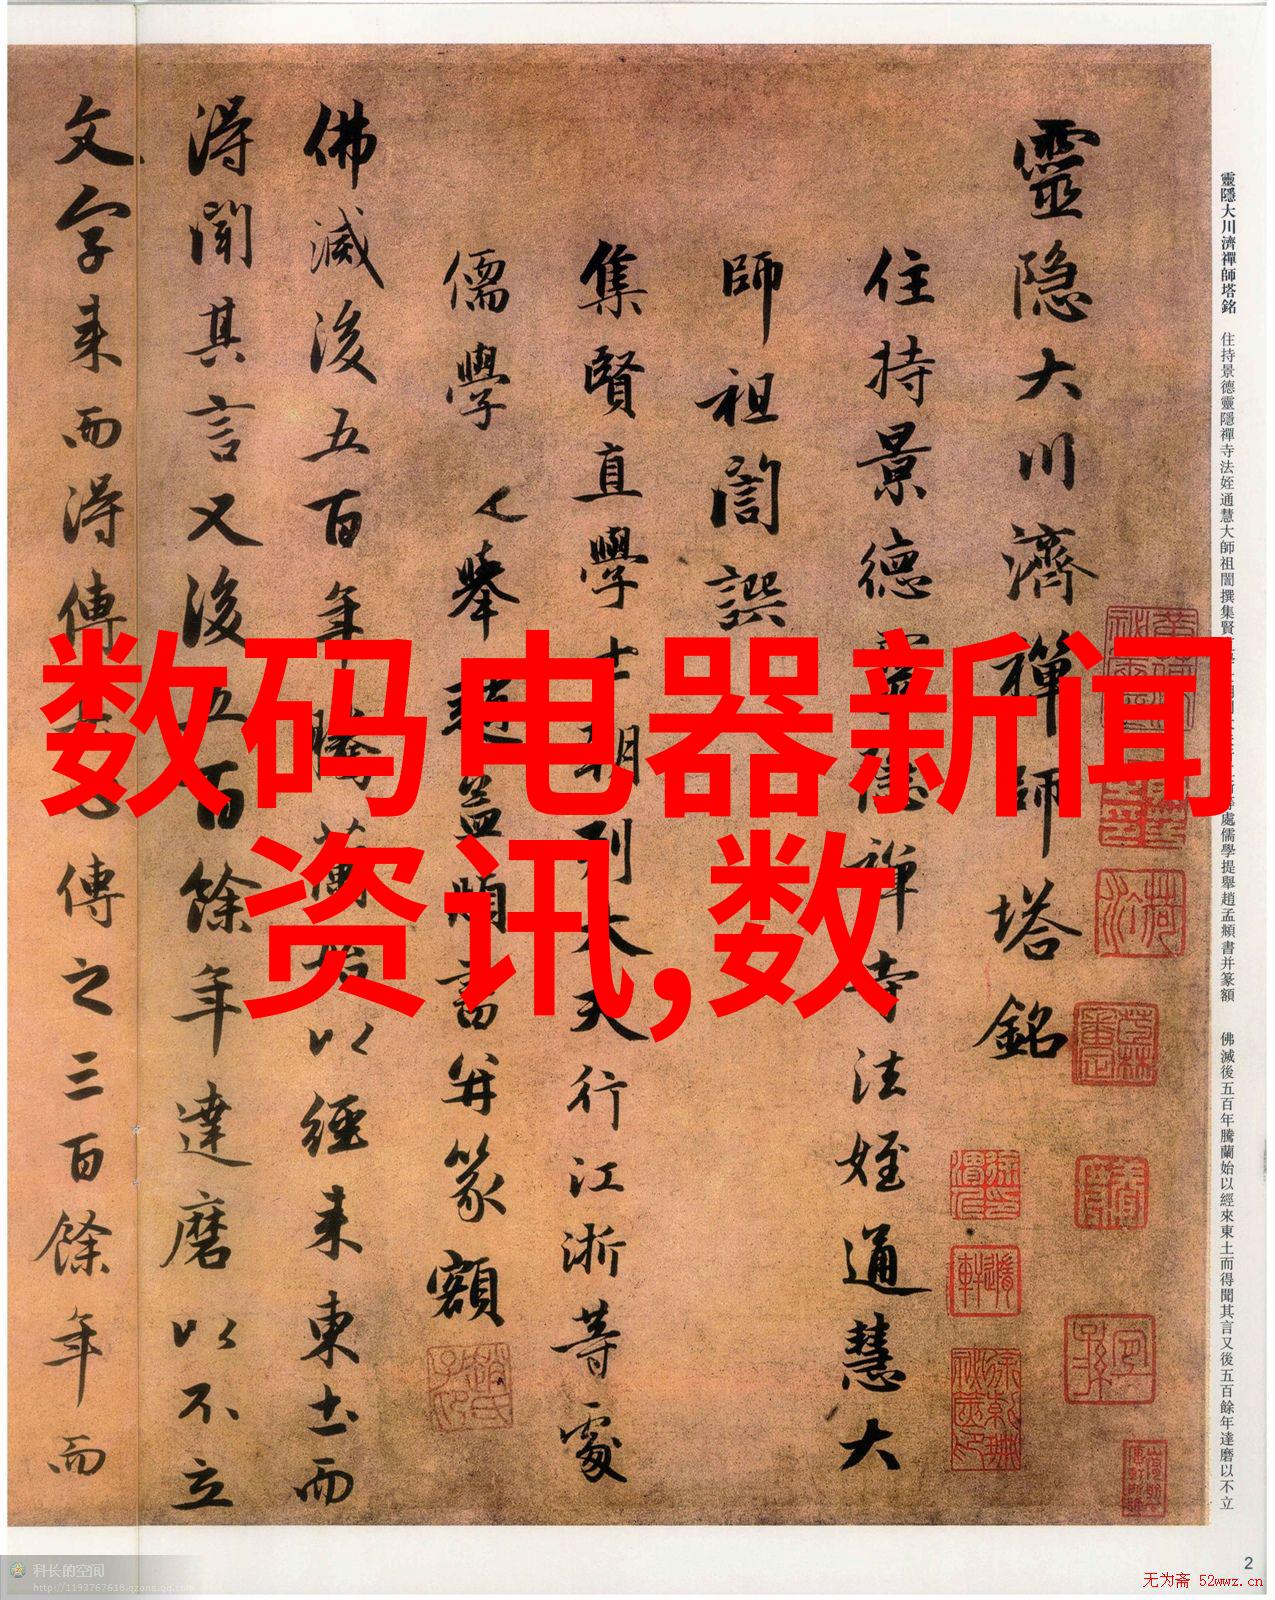 靈隐大川濟禪師塔銘
住持景德靈隐禪寺法姪通慧大
師祖誾譔
集賢直學士朝列大夫行江浙等處
儒學提舉趙孟頫書并篆額
佛滅後五百年騰蘭始以經来東土而
得聞其言又後五百餘年達磨以不立
文字来而得傳傳之三百餘年而
靈隱大川濟禪師塔銘 住持景德靈隱禪寺法姪通慧大師祖誾撰集賢處儒學提舉趙孟頫書并篆額 佛滅後五百年騰蘭始以經來東土而得聞其言又後五百餘年達磨以不立
数码电器新闻
资讯,数
2
科长的空间
http://1193767618.qzone.qq.com
无为斋 52wwz.cn